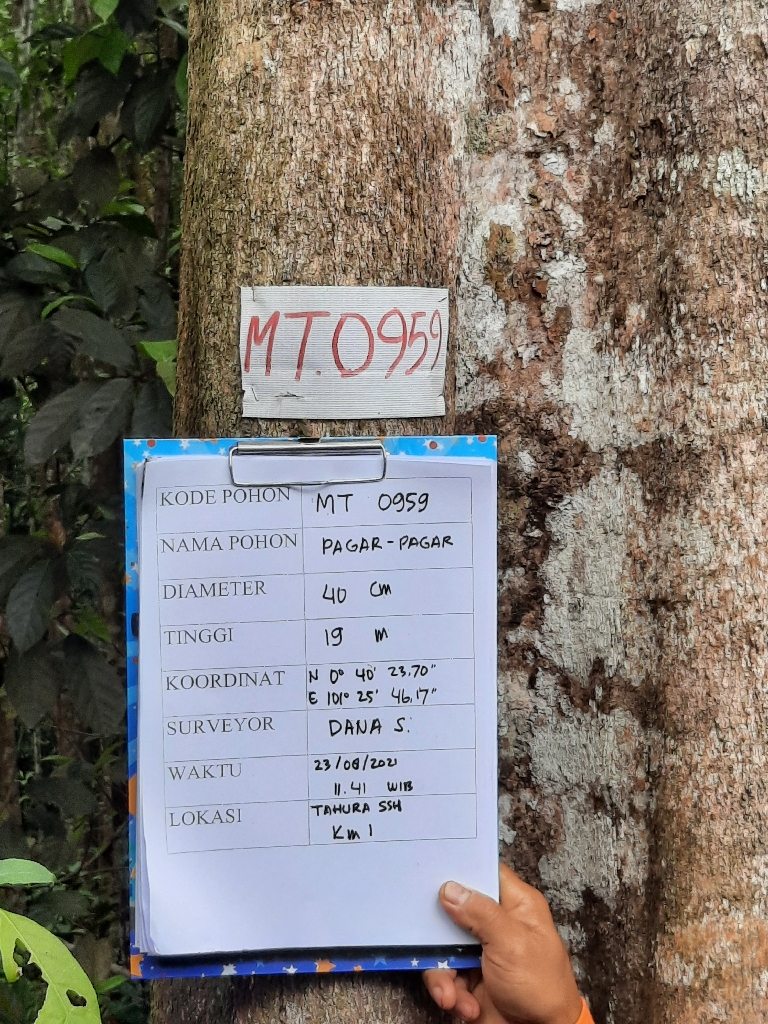 MT.0959
KODE POHON MT 0959
NAMA POHON PAGAR-PAGAR
DIAMETER 40 cm
TINGGI 19 m
KOORDINAT N 0° 40' 23.70"
E 101° 25' 46.17"
SURVEYOR DANA S.
WAKTU 23/08/2021
11.41 WIB
LOKASI TAHURA SSH
Km 1